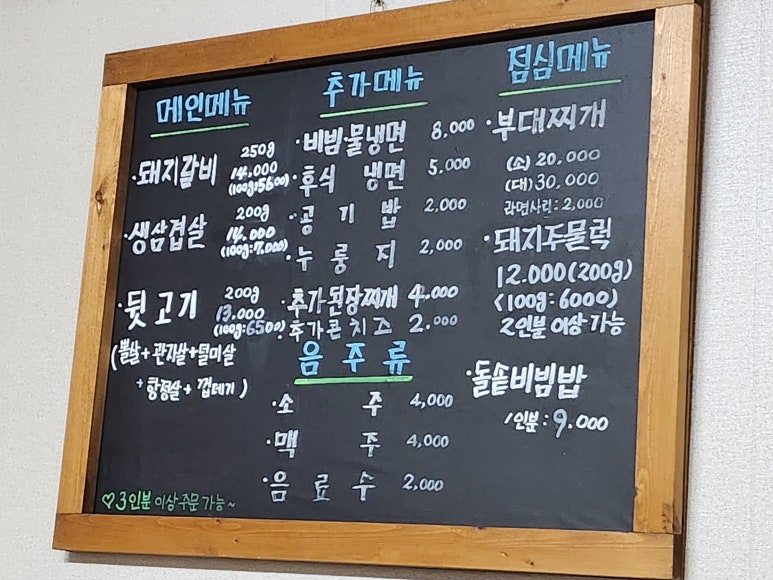 메인메뉴
돼지갈비 250g
14,000
(100g:5600)
생삼겹살 200g
14,000
(100g:7,000)
뒷고기 200g
13,000
(100g:6500)
(뽈살+관자살+덜미살
+항정살+껍데기)
♡3인분 이상 주문 가능~
추가메뉴
·비빔·물냉면 8.000
·후식 냉면 5,000
·공기밥 2,000
·누룽지 2,000
·추가된장찌개 4.000
·추가콘치즈 2.000
음주류
·소주 4,000
·맥주 4,000
·음료수 2,000
점심메뉴
·부대찌개
(소) 20.000
(대) 30,000
라면사리:2,000
·돼지주물럭
12.000(200g)
<100g:6000)
2인분 이상 가능
·돌솥비빔밥
1인분:9.000